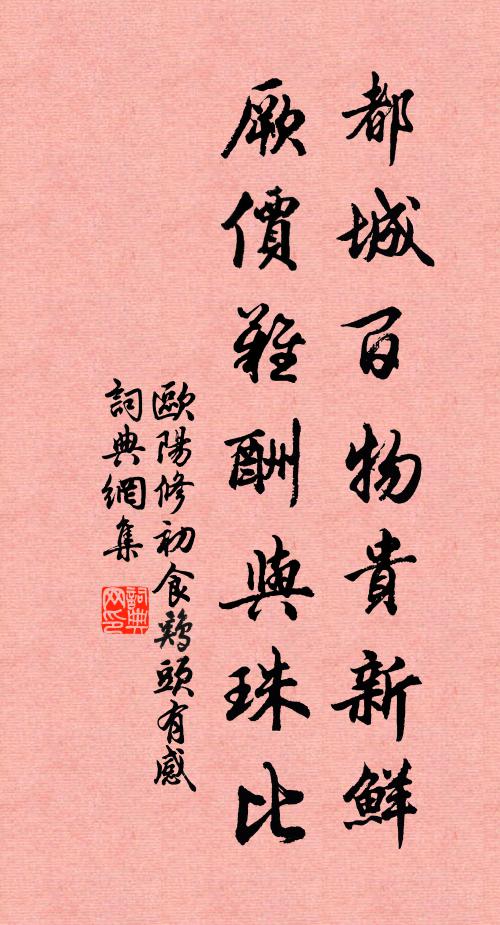 都城百物貴新鮮
厥價難酬與珠比
歐陽修初食鷄頭有感
詞典網集
詞典网印